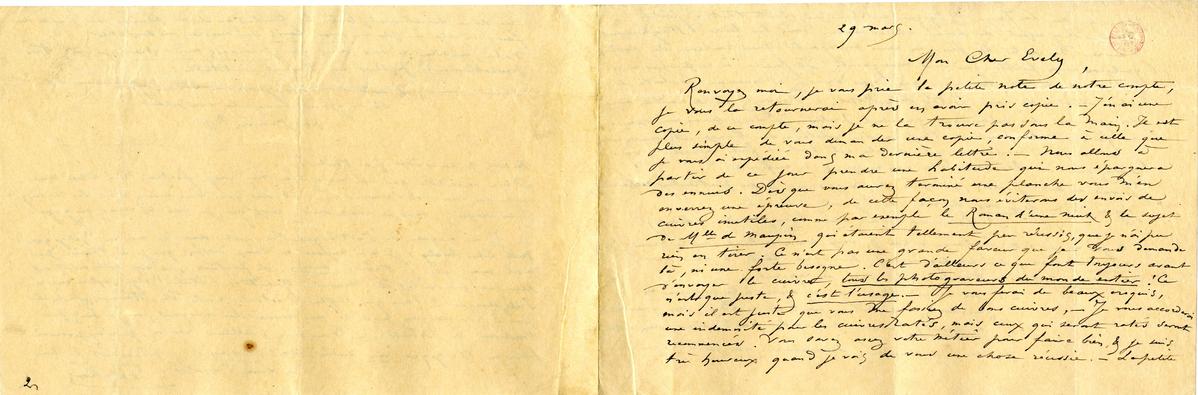 29 mars.
Mon Cher Evely,
Renvoyez moi, je vous prie la petite note de notre compte,
je vous la retournerai après en avoir pris copie. — J'en ai une
copie, de ce compte, mais je ne la trouve pas sous la main. Il est
plus simple de vous demander une copie, conforme à celle que
je vous ai expédiée dans ma dernière lettre. — Nous allons à
partir de ce jour prendre une habitude qui nous épargnera
des ennuis. Dès que vous aurez terminé une planche vous m'en
enverrez une épreuve, de cette façon nous éviterons des envois de
cuivres inutiles, comme par exemple le Roman d'une nuit & le sujet
de Mlle de Maupin qui étaient tellement peu réussis, que je n'ai pu
rien en tirer. Ce n'est pas une grande faveur que je vous demande
là, ni une forte besogne. C'est d'ailleurs ce que font toujours avant
d'envoyer le cuivre, tous les photograveurs du monde entier ! Ce
n'est que juste, & c'est l'usage. — Je vous ferai de beaux croquis,
mais il est juste que vous me fassiez de bons cuivres, — Je vous accorderai
une indemnité pour les cuivres ratés, mais ceux qui seront ratés seront
recommencés. Vous savez assez votre métier pour faire bien, & je suis
très heureux quand je vois de vous une chose réussie. — La petite
2